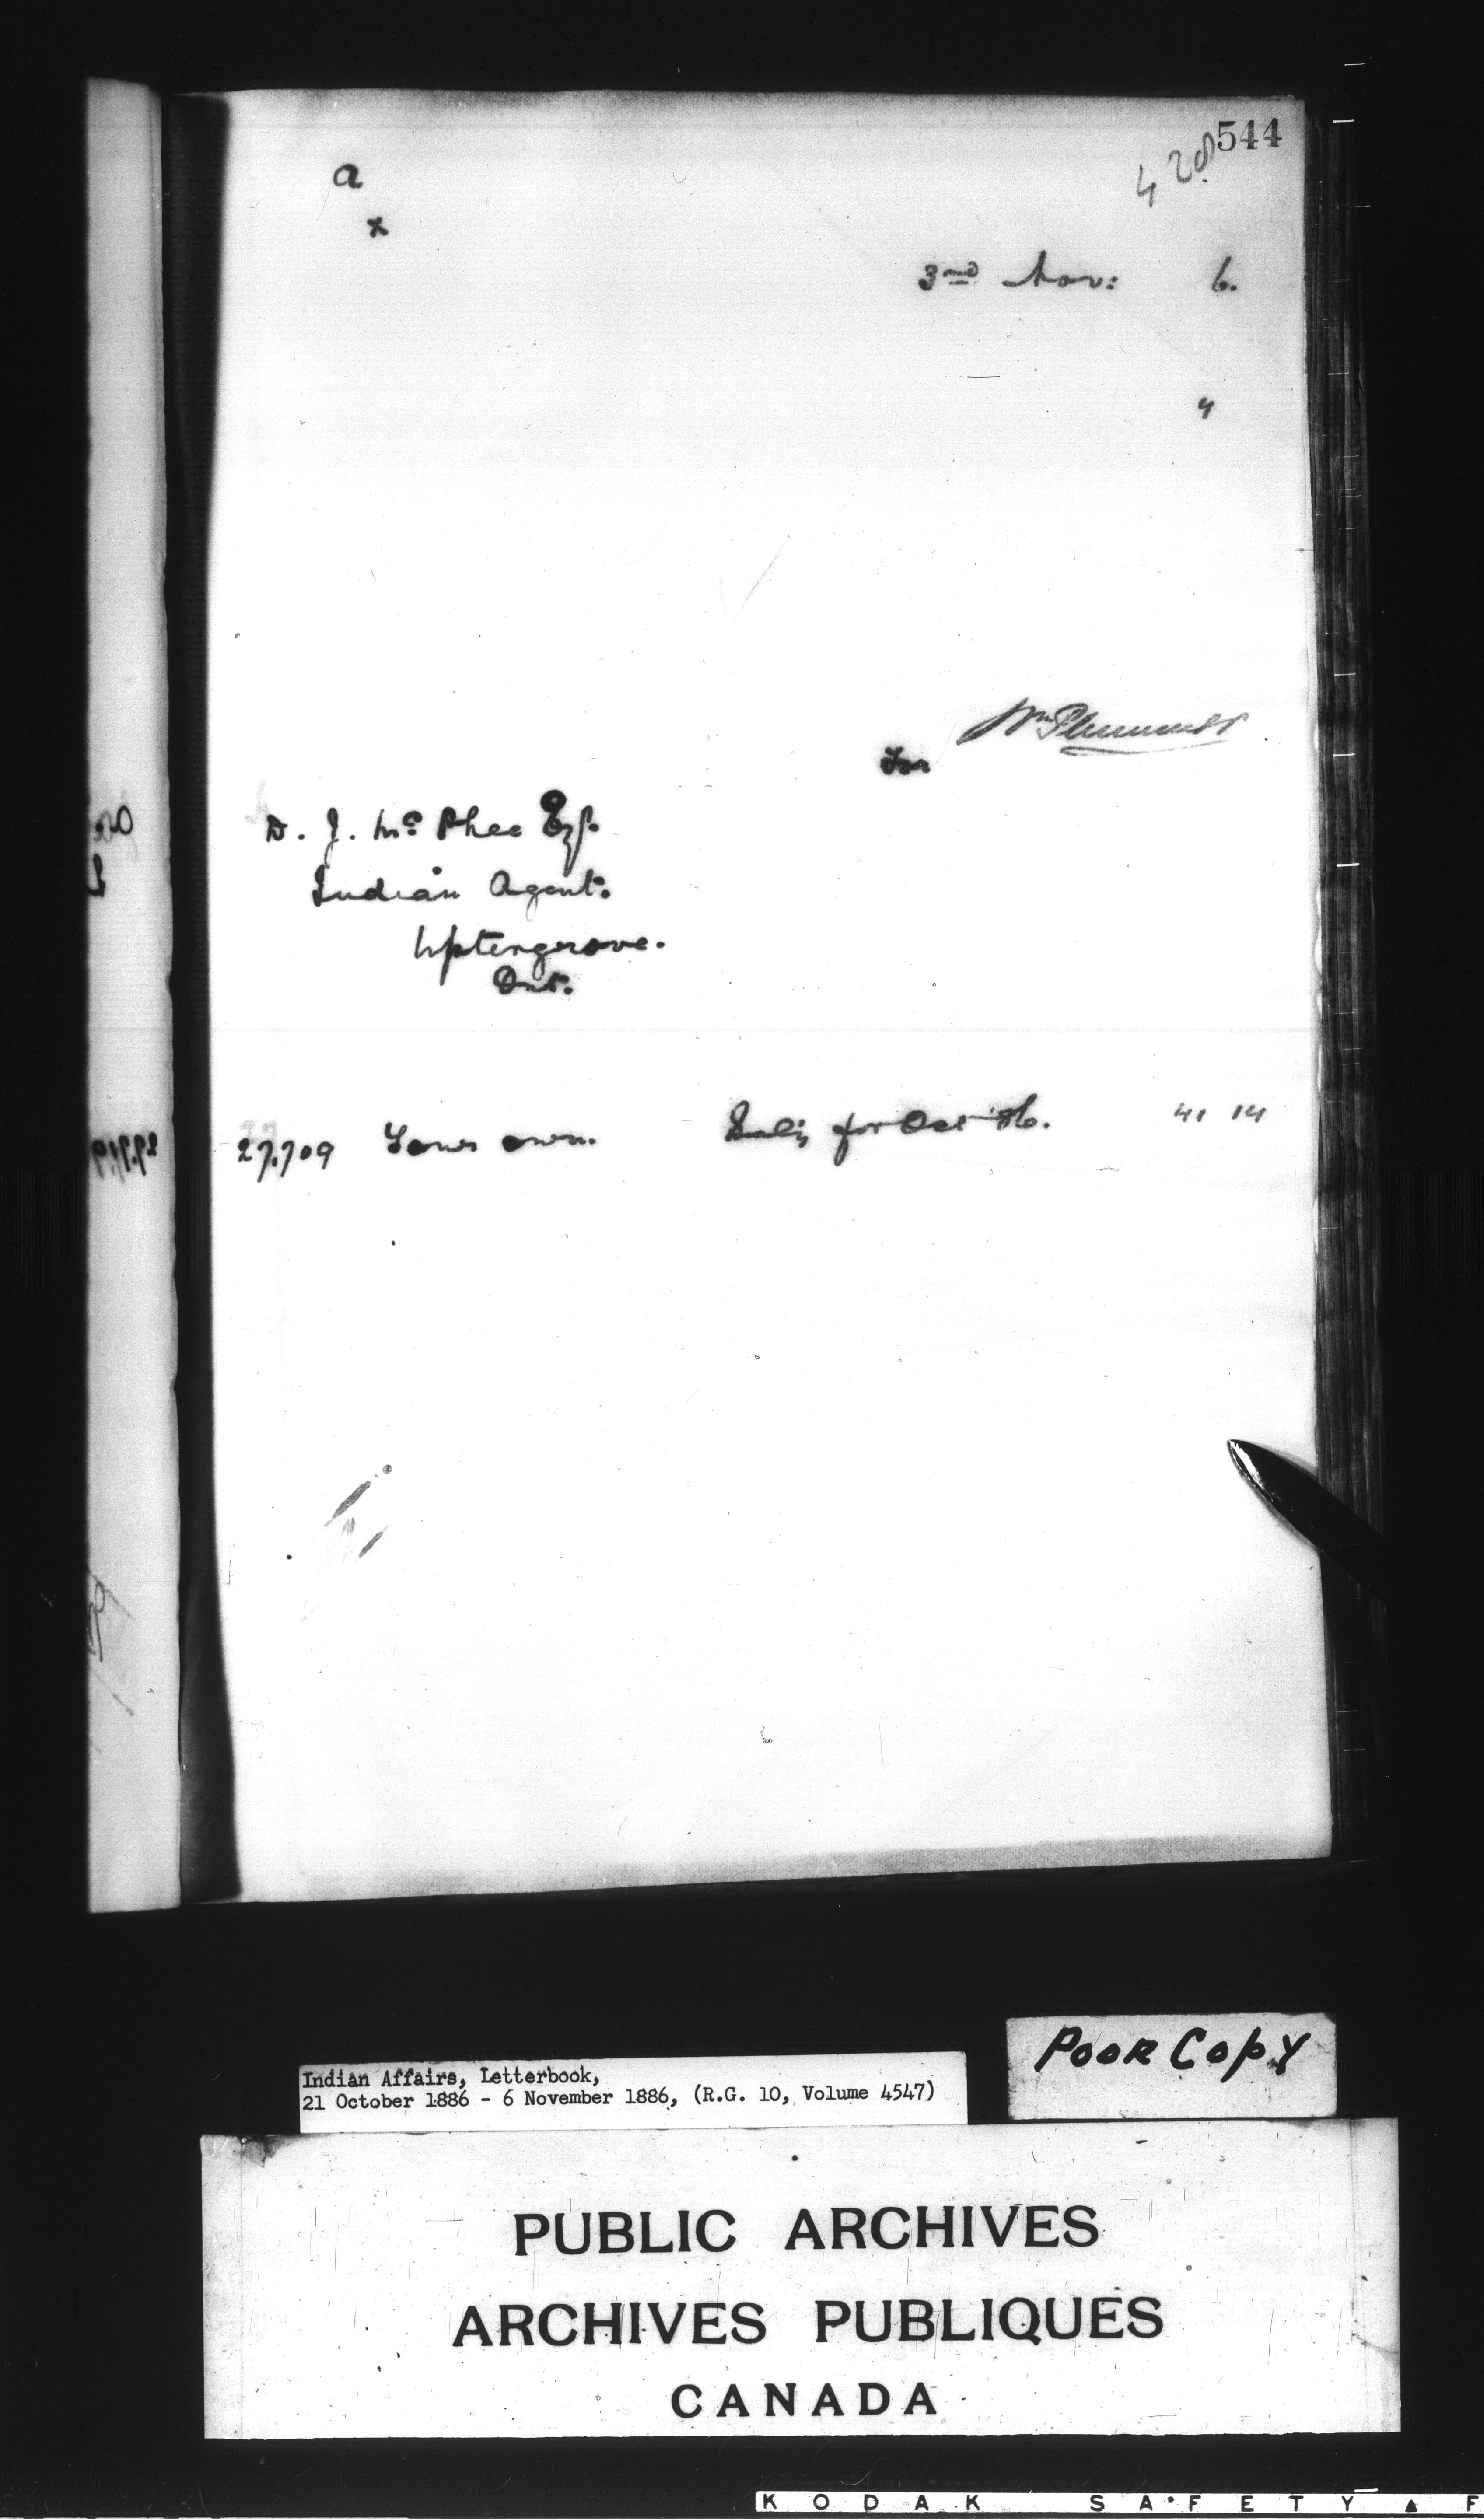 544
428
a
x
3nd Nov: 6.
4
Wm Plummer
For
D. J. Mc Phee Esq.
Indian Agent.
Uptergrove.
Ont.
27.709 Your own. Sal'y for Oct '86. 41 14
Indian Affairs, Letterbook,
21 October 1886 - 6 November 1886, (R.G. 10, Volume 4547)
POOR COPY
PUBLIC ARCHIVES
ARCHIVES PUBLIQUES
CANADA
KODAK SAFETY ▲ F